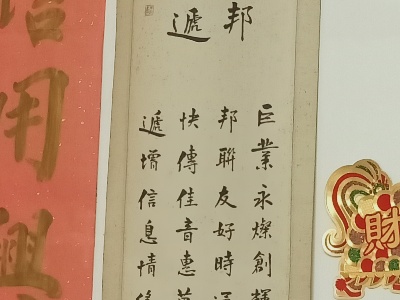 邦遞
巨業永燦創輝
邦聯友好時
快傳佳音惠
遞增信息情
用
財